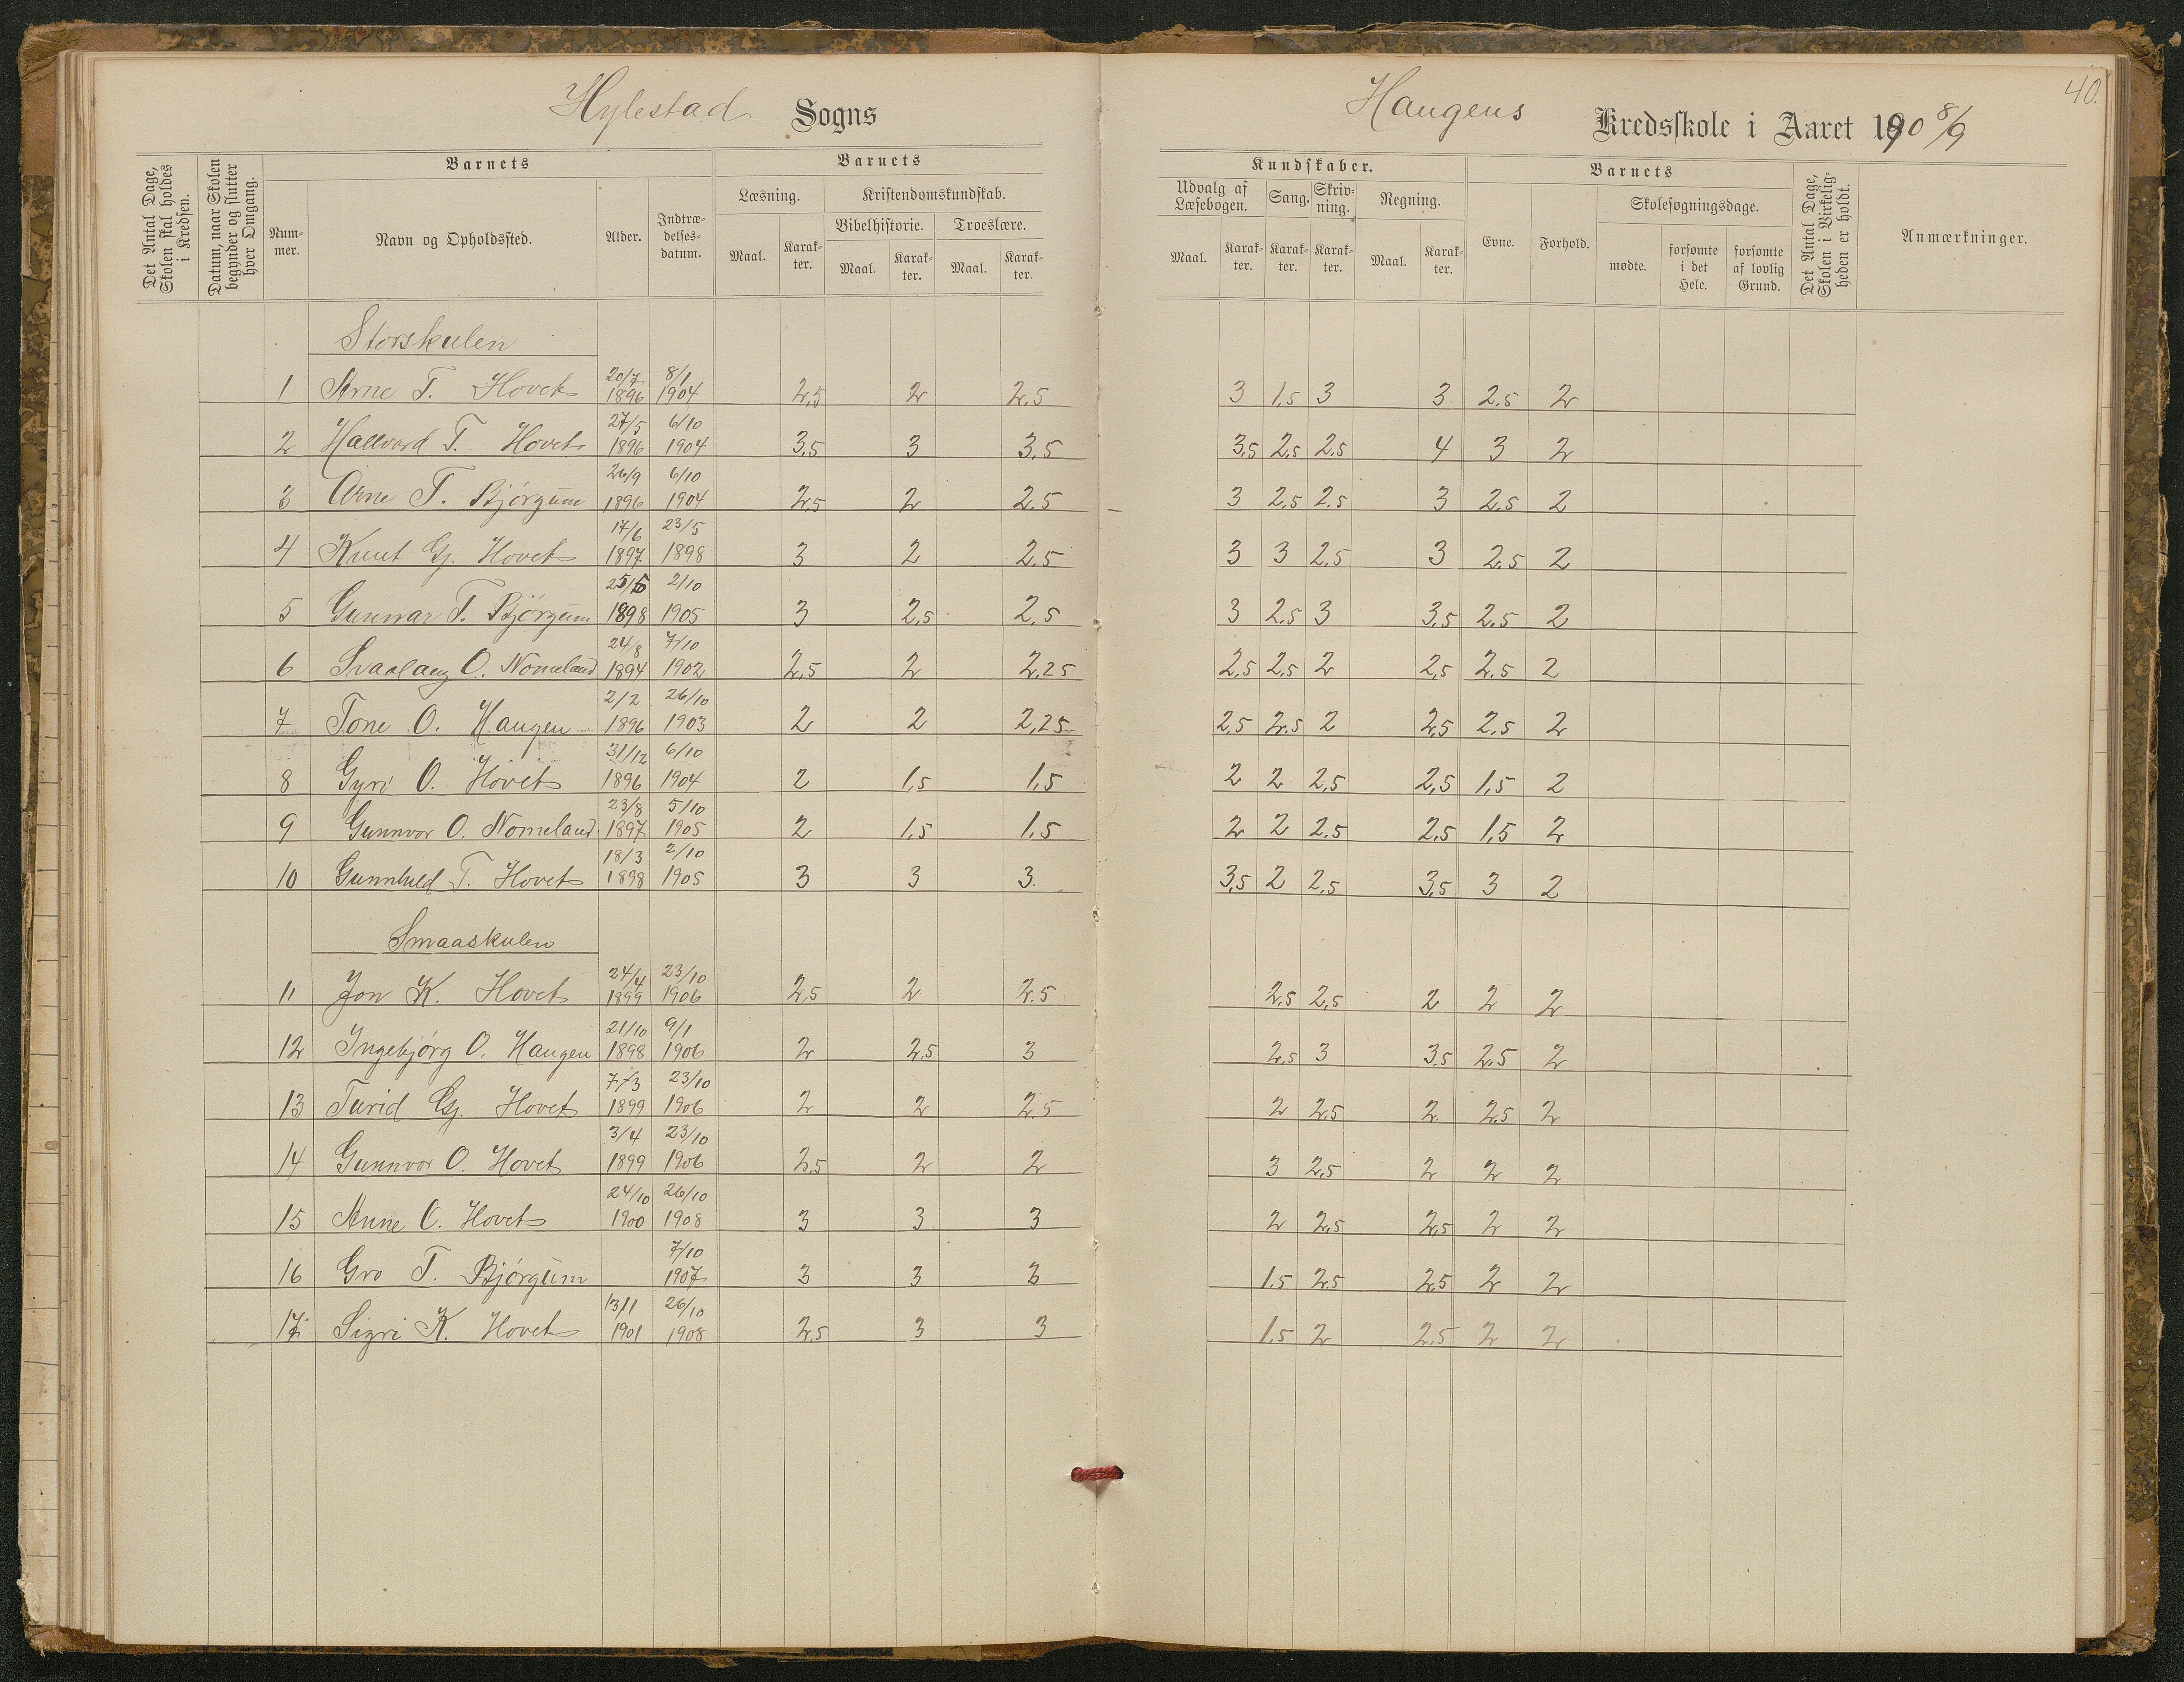 40.
Hylestad Sogns
Haugens Kredsskole i Aaret 190 8/9
Det Antal Dage, Skolen skal holdes i Kredsen.
Datum, naar Skolen begynder og slutter hver Omgang.
Barnets
Nummer.
Navn og Opholdssted.
Alder.
Indtrædelsesdatum.
Barnets
Læsning.
Maal.
Karakter.
Kristendomskundskab.
Bibelhistorie.
Maal.
Karakter.
Troeslære.
Maal.
Karakter.
Kundskaber.
Udvalg af Læsebogen.
Maal.
Karakter.
Sang.
Karakter.
Skrivning.
Karakter.
Regning.
Maal.
Karakter.
Barnets
Evne.
Forhold.
Skolesøgningsdage.
mødte.
forsømte i det Hele.
forsømte af lovlig Grund.
Det Antal Dage, Skolen i Virkeligheden er holdt.
Anmærkninger.
Storskulen
1 Arne T. Hovet 20/7 1896 8/1 1904 2,5 2 2.5 3 1,5 3 3 2.5 2
2 Hallvard T. Hovet 27/5 1896 6/10 1904 3,5 3 3,5 3,5 2,5 2,5 4 3 2
3 Arne T. Bjørgum 26/9 1896 6/10 1904 2,5 2 2.5 3 2,5 2.5 3 2.5 2
4 Knut Gj. Hovet 17/6 1897 23/5 1898 3 2 2.5 3 3 2,5 3 2.5 2
5 Gunnar T. Bjørgum 25/5 1898 2/10 1905 3 2,5 2,5 3 2,5 3 3,5 2,5 2
6 Svaalaug O. Nomeland 24/8 1894 7/10 1902 2,5 2 2,25 2,5 2,5 2 2,5 2.5 2
7 Tone O. Haugen 2/2 1896 26/10 1903 2 2 2,25 2,5 2.5 2 2,5 2,5 2
8 Gyro O. Hovet 31/12 1896 6/10 1904 2 1,5 1,5 2 2 2,5 2,5 1,5 2
9 Gunnvor O. Nomeland 23/8 1897 5/10 1905 2 1,5 1,5 2 2 2,5 2,5 1,5 2
10 Gunnhild T. Hovet 18/3 1898 2/10 1905 3 3 3. 3,5 2 2,5 3,5 3 2
Smaaskulen
11 Jon K. Hovet 24/4 1899 23/10 1906 2,5 2 2.5 2,5 2,5 2 2 2
12 Ingebjørg O. Haugen 21/10 1898 9/1 1906 2 2,5 3 2,5 3 3,5 2,5 2
13 Turid Gj. Hovet 7/3 1899 23/10 1906 2 2 2.5 2 2,5 2. 2,5 2
14 Gunnvor O. Hovet 3/4 1899 23/10 1906 2,5 2 2 3 2,5 2 2 2
15 Anne O. Hovet 24/10 1900 26/10 1908 3 3 3 2 2,5 2,5 2 2
16 Gro T. Bjørgum 7/10 1907 3 3 3 1.5 2.5 2,5 2 2
17 Sigri K. Hovet 13/1 1901 26/10 1908 2,5 3 3 1.5 2 2.5 2 2